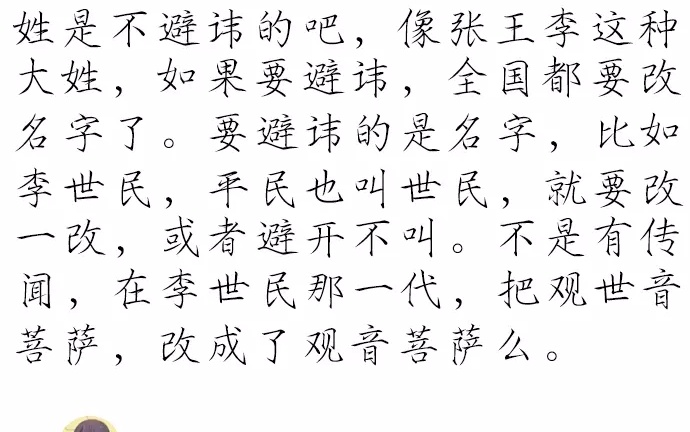 姓是不避讳的吧，像张王李这种
大姓，如果要避讳，全国都要改
名字了。要避讳的是名字，比如
李世民，平民也叫世民，就要改
一改，或者避开不叫。不是有传
闻，在李世民那一代，把观世音
菩萨，改成了观音菩萨么。